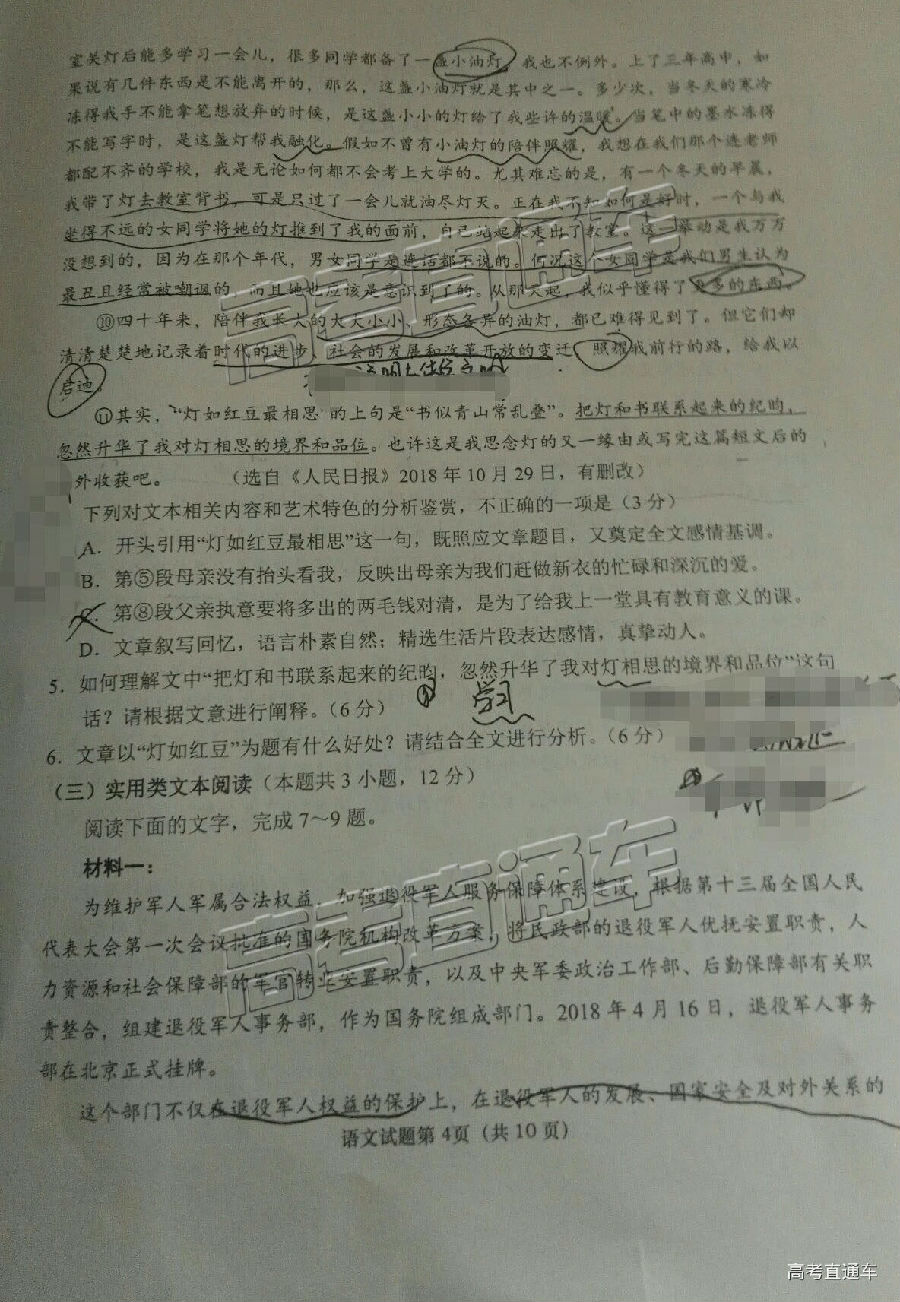 室关灯后能多学习一会儿，很多同学都备了一盏小油灯。我也不例外。上了三年高中，如
果说有几件东西是不能离开的，那么，这盏小油灯就是其中之一。多少次，当冬天的寒冷
冻得我手不能拿笔想放弃的时候，是这盏小小的灯给了我些许的温暖。当笔中的墨水冻得
不能写字时，是这盏灯帮我融化。假如不曾有小油灯的陪伴照耀，我想在我们那个连老师
都配不齐的学校，我是无论如何都不会考上大学的。尤其难忘的是，有一个冬天的早晨，
我带了灯去教室背书，可是只过了一会儿就油尽灯灭。正在我不知如何是好时，一个与我
坐得不远的女同学将她的灯推到了我的面前，自己站起来走出了教室。这一举动是我万万
没想到的，因为在那个年代，男女同学是连话都不说的。何况这个女同学是我们男生认为
最丑且经常被嘲讽的，而且她也应该是意识到了的。从那天起，我似乎懂得了更多的东西。
⑩四十年来，陪伴我长大的大大小小、形态各异的油灯，都已难得见到了。但它们却
清清楚楚地记录着时代的进步、社会的发展和改革开放的变迁，照耀我前行的路，给我以
启迪。
⑪其实，“灯如红豆最相思”的上句是“书似青山常乱叠”。把灯和书联系起来的纪昀，
忽然升华了我对灯相思的境界和品位。也许这是我思念灯的又一缘由或写完这篇短文后的
外收获吧。（选自《人民日报》2018年10月29日，有删改）
下列对文本相关内容和艺术特色的分析鉴赏，不正确的一项是（3分）
A．开头引用“灯如红豆最相思”这一句，既照应文章题目，又奠定全文感情基调。
B．第⑤段母亲没有抬头看我，反映出母亲为我们赶做新衣的忙碌和深沉的爱。
第⑧段父亲执意要将多出的两毛钱对清，是为了给我上一堂具有教育意义的课。
D．文章叙写回忆，语言朴素自然；精选生活片段表达感情，真挚动人。
5．如何理解文中“把灯和书联系起来的纪昀，忽然升华了我对灯相思的境界和品位”这句
话？请根据文意进行阐释。（6分）
① 学习
6．文章以“灯如红豆”为题有什么好处？请结合全文进行分析。（6分）
（三）实用类文本阅读（本题共3小题，12分）
阅读下面的文字，完成7～9题。
材料一：
为维护军人军属合法权益，加强退役军人服务保障体系建设，根据第十三届全国人民
代表大会第一次会议批准的国务院机构改革方案，将民政部的退役军人优抚安置职责，人
力资源和社会保障部的军官转业安置职责，以及中央军委政治工作部、后勤保障部有关职
责整合，组建退役军人事务部，作为国务院组成部门。2018年4月16日，退役军人事务
部在北京正式挂牌。
这个部门不仅在退役军人权益的保护上，在退役军人的发展、国家安全及对外关系的
语文试题第4页（共10页）
高考直通车
高考直通车
高考直通车